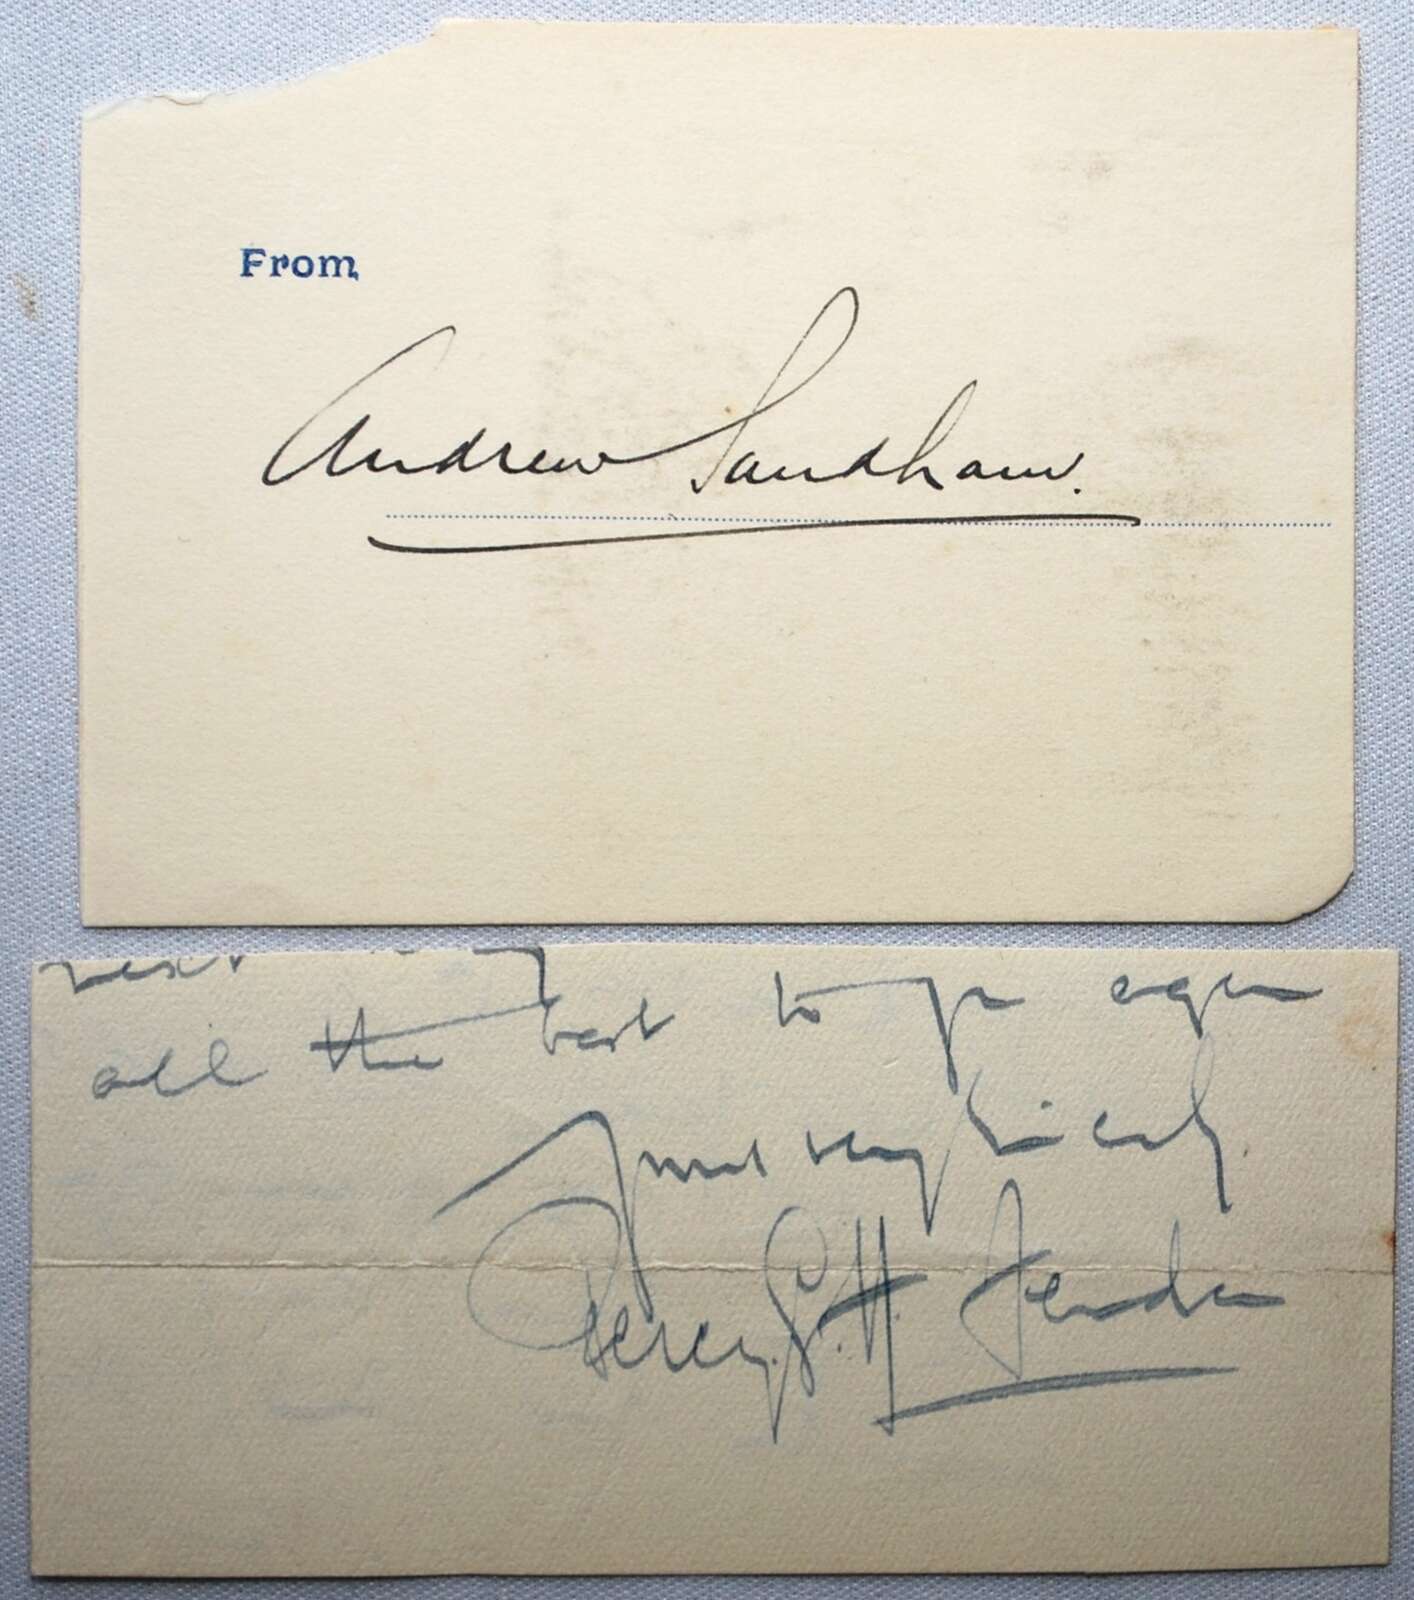 From
Andrew Sandham.
next
all the best to you again
Yours very sincerely
Percy. G. H. Fender